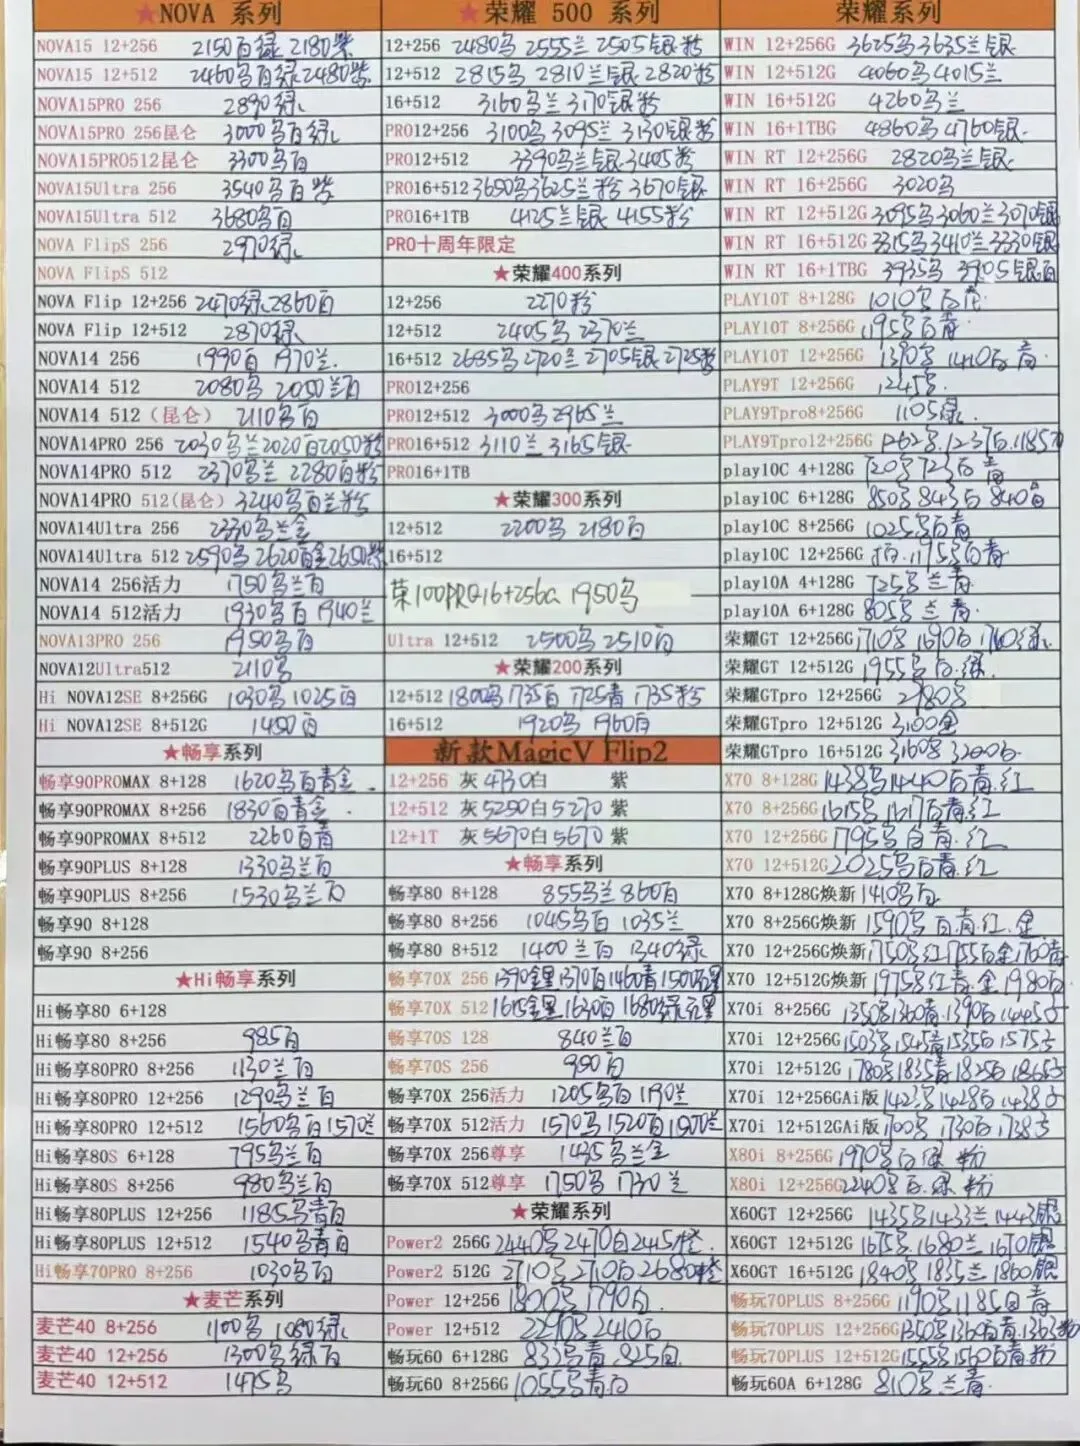 ★NOVA 系列
NOVA15 12+256 2150百绿 2180紫
NOVA15 12+512 2460乌百绿2480紫
NOVA15PRO 256 2890绿
NOVA15PRO 256昆仑 3000乌百绿
NOVA15PRO512昆仑 3300乌百
NOVA15Ultra 256 3540乌百紫
NOVA15Ultra 512 3680乌百
NOVA FlipS 256 2970绿
NOVA FlipS 512
NOVA Flip 12+256 2470绿2860百
NOVA Flip 12+512 2870绿
NOVA14 256 1990百 1970兰.
NOVA14 512 2080乌 2050兰百
NOVA14 512（昆仑） 2110乌百
NOVA14PRO 256 2030乌兰2020百2050粉
NOVA14PRO 512 2370乌兰 2280百粉
NOVA14PRO 512(昆仑) 3240乌百兰粉
NOVA14Ultra 256 2330乌兰金
NOVA14Ultra 512 2590乌 2620百金2650紫
NOVA14 256活力 1750乌兰百
NOVA14 512活力 1930乌百 1940兰
NOVA13PRO 256 1950乌百
NOVA12Ultra512 2110乌
Hi NOVA12SE 8+256G 1030乌1025百
Hi NOVA12SE 8+512G 1450百
★畅享系列
畅享90PROMAX 8+128 1620乌百青金
畅享90PROMAX 8+256 1830百青金
畅享90PROMAX 8+512 2260百青
畅享90PLUS 8+128 1330乌兰百
畅享90PLUS 8+256 1530乌兰百
畅享90 8+128
畅享90 8+256
★Hi畅享系列
Hi畅享80 6+128
Hi畅享80 8+256 985百
Hi畅享80PRO 8+256 1130兰百
Hi畅享80PRO 12+256 1290乌兰百
Hi畅享80PRO 12+512 1560乌百1570兰
Hi畅享80S 6+128 795乌兰百
Hi畅享80S 8+256 980乌兰百
Hi畅享80PLUS 12+256 1185乌青百
Hi畅享80PLUS 12+512 1540乌青百
Hi畅享70PRO 8+256 1030乌百
★麦芒系列
麦芒40 8+256 1100乌 1080绿
麦芒40 12+256 1300乌绿百
麦芒40 12+512 1475乌
★荣耀 500 系列
12+256 2480乌 2555兰 2505银粉
12+512 2815乌 2810兰银 2820粉
16+512 3160乌兰 3170银粉
PRO12+256 3100乌 3095兰 3130银粉
PRO12+512 3390乌兰银 3405粉
PRO16+512 3650乌3625兰粉 3670银
PRO16+1TB 4125兰银 4155粉
PRO十周年限定
★荣耀400系列
12+256 2270粉
12+512 2405乌 2370兰
16+512 2685乌2720兰 2705银 2725粉
PRO12+256
PRO12+512 3000乌2965兰
PRO16+512 3110兰 3165银
PRO16+1TB
★荣耀300系列
12+512 2200乌 2180百
16+512
荣100PRO16+256G 1950乌
Ultra 12+512 2500乌 2510百
★荣耀200系列
12+512 1800乌1735百 1725青 1735粉
16+512 1920乌 1960百
新款MagicV Flip2
12+256 灰 4730白 紫
12+512 灰5250白5270 紫
12+1T 灰5670白5670 紫
★畅享系列
畅享80 8+128 855乌兰860百
畅享80 8+256 1045乌百 1035兰
畅享80 8+512 1400兰百 1340绿
畅享70X 256 1390金黑1370百1460青
畅享70X 512 1615金黑1630百
畅享70S 128 840兰百
畅享70S 256 950百
畅享70X 256活力 1205乌百 1190兰
畅享70X 512活力 1570乌1520百1500兰
畅享70X 256尊享 1435乌兰金
畅享70X 512尊享 1750乌 1730兰
★荣耀系列
Power2 256G 2440乌2470白2415橙
Power2 512G 2710乌2710白2680橙
Power 12+256 1800乌1790白
Power 12+512 2290乌2410白
畅玩60 6+128G 832乌青 825白
畅玩60 8+256G 1055乌青白
荣耀系列
WIN 12+256G 3625乌3635兰银
WIN 12+512G 4060乌4015兰
WIN 16+512G 4260乌兰
WIN 16+1TBG 4860乌4760银
WIN RT 12+256G 2820乌兰银
WIN RT 16+256G 3020乌
WIN RT 12+512G 3095乌3060兰3070银
WIN RT 16+512G 3315乌3410兰3330银
WIN RT 16+1TBG 3935乌 3905银百
PLAY10T 8+128G 1010乌百
PLAY10T 8+256G 1195乌百青
PLAY10T 12+256G 1390乌 1410百青
PLAY9T 12+256G 1245乌
PLAY9Tpro8+256G 1105绿
PLAY9Tpro12+256G 1262乌.1237百
play10C 4+128G 720乌723百青
play10C 6+128G 850乌843百 840青
play10C 8+256G 1025乌百青
play10C 12+256G 1195乌百青
play10A 4+128G 725乌兰青
play10A 6+128G 805乌兰青
荣耀GT 12+256G 1710乌1690百 1760绿
荣耀GT 12+512G 1955乌百绿
荣耀GTpro 12+256G 2780乌
荣耀GTpro 12+512G 3100金
荣耀GTpro 16+512G 3160乌 3200百
X70 8+128G 1438乌1440百青红
X70 8+256G 1615乌1617百青红
X70 12+256G 1795乌百青红
X70 12+512G 2025乌百青红
X70 8+128G焕新 1410乌百
X70 8+256G焕新 1590乌百青红金
X70 12+256G焕新 1750乌红1755百金1760青
X70 12+512G焕新 1975乌红青金1980百
X70i 8+256G 1350乌1360青1390百
X70i 12+256G 1503乌1545青1535百
X70i 12+512G 1780乌1835青1825百
X70i 12+256GAi版 1423乌1428百
X70i 12+512GAi版 1700乌1730百
X80i 8+256G 1970乌百绿粉
X80i 12+256G 2240乌百绿粉
X60GT 12+256G 1435乌1433兰1443银
X60GT 12+512G 1675乌1680兰1670银
X60GT 16+512G 1840乌1835兰1860银
畅玩70PLUS 8+256G 1190乌1185白青
畅玩70PLUS 12+256G 1350乌1360百青1363粉
畅玩70PLUS 12+512G 1555乌1560百青粉
畅玩60A 6+128G 810乌兰青